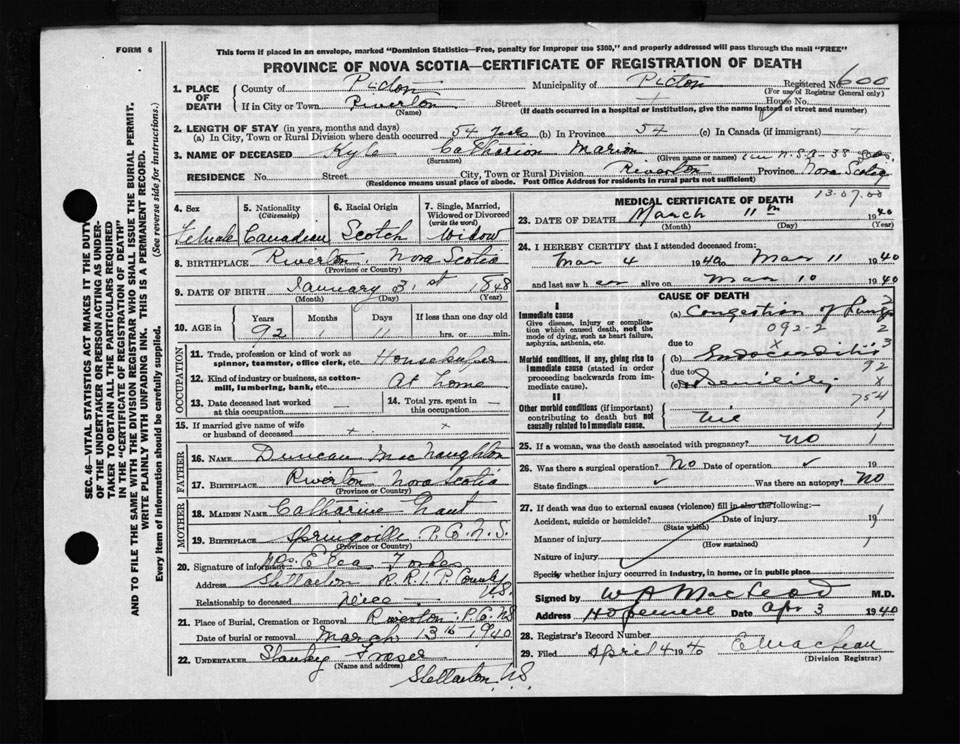 FORM 6
This form if placed in an envelope, marked "Dominion Statistics—Free, penalty for improper use $300," and properly addressed will pass through the mail "FREE"
PROVINCE OF NOVA SCOTIA—CERTIFICATE OF REGISTRATION OF DEATH
1. PLACE OF DEATH
County of Pictou Municipality of Pictou Registered No. 600
(For use of Registrar General only)
If in City or Town Riverton Street House No.
(Name) (If death occurred in a hospital or institution, give the name instead of street and number)
2. LENGTH OF STAY (in years, months and days)
(a) In City, Town or Rural Division where death occurred 54 (b) In Province 54 (c) In Canada (if immigrant)
3. NAME OF DECEASED Kyle Catharion Marion
(Surname) (Given name or names)
RESIDENCE No. Street City, Town or Rural Division Riverton Province Nova Scotia
(Residence means usual place of abode. Post Office Address for residents in rural parts not sufficient)
4. Sex Female
5. Nationality (Citizenship) Canadian
6. Racial Origin Scotch
7. Single, Married, Widowed or Divorced (write the word) Widow
8. BIRTHPLACE Riverton, Nova Scotia
(Province or Country)
9. DATE OF BIRTH January 31st 1848
(Month) (Day) (Year)
10. AGE in Years Months Days If less than one day old
92 1 11 hrs. or min.
OCCUPATION
11. Trade, profession or kind of work as spinner, teamster, office clerk, etc. Housekeeper
12. Kind of industry or business, as cotton-mill, lumbering, bank, etc. At home
13. Date deceased last worked at this occupation —
14. Total yrs. spent in this occupation —
15. If married give name of wife or husband of deceased
FATHER
16. NAME Duncan MacNaughton
17. BIRTHPLACE Riverton Nova Scotia
(Province or Country)
MOTHER
18. MAIDEN NAME Catharine Grant
19. BIRTHPLACE Springville P.C. N.S.
(Province or Country)
20. Signature of informant Forbes
Address Stellarton R.R.1. P. County N.S.
Relationship to deceased Niece
21. Place of Burial, Cremation or Removal Riverton P.C. NS
Date of burial or removal March 13th 1940
22. UNDERTAKER Stanley Fraser
(Name and address)
Stellarton, NS
MEDICAL CERTIFICATE OF DEATH 13.07.00
23. DATE OF DEATH March 11th 1940
(Month) (Day) (Year)
24. I HEREBY CERTIFY that I attended deceased from:
Mar 4 1940 to Mar 11 1940
and last saw her alive on Mar 10 1940
CAUSE OF DEATH
I
Immediate cause
Give disease, injury or complication which caused death, not the mode of dying, such as heart failure, asphyxia, asthenia, etc.
(a) Congestion of Lungs
092-2
due to
Morbid conditions, if any, giving rise to immediate cause (stated in order proceeding backwards from immediate cause).
(b) Endocarditis
due to
(c) Senility
II
Other morbid conditions (if important) contributing to death but not causally related to immediate cause.
Nil
25. If a woman, was the death associated with pregnancy? No
26. Was there a surgical operation? No Date of operation 19
State findings Was there an autopsy? No
27. If death was due to external causes (violence) fill in also the following:—
Accident, suicide or homicide? Date of injury 19
(State which)
Manner of injury
(How sustained)
Nature of injury
Specify whether injury occurred in industry, in home, or in public place
Signed by W A MacLeod M.D.
Address Hopewell Date Apr 3 1940
28. Registrar's Record Number
29. Filed April 4 1940 E MacLean
(Division Registrar)
SEC. 46—VITAL STATISTICS ACT MAKES IT THE DUTY OF THE UNDERTAKER OR PERSON ACTING AS UNDERTAKER TO OBTAIN ALL THE PARTICULARS REQUIRED IN THE "CERTIFICATE OF REGISTRATION OF DEATH"
AND TO FILE THE SAME WITH THE DIVISION REGISTRAR WHO SHALL ISSUE THE BURIAL PERMIT.
WRITE PLAINLY WITH UNFADING INK. THIS IS A PERMANENT RECORD.
Every item of information should be carefully supplied. (See reverse side for instructions.)